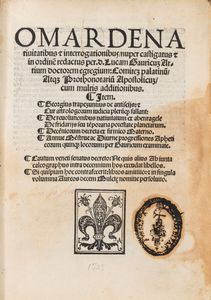 OMAR DE NA
tiuitatibus et interrogationibus, nuper castigatus et
in ordinē redactus per .d. Lucam Gauricum Ar
tium doctorem egregium: Comitē palatinū
Atq Prothonotariū Apostolicū
cum multis additionibus.
Item.
Georgius trapezuntius de antisciis et
Cur astrologorum iudicia plerūq fallant:
De reuolutionibus natiuitatum ex abenragele
De fridariis seu tēporaria potestate planetarum.
Decēnorum decreta ex firmico Materno.
Annue Mēstrue ac Diurne progressiones Apheti
corum quinq locorum per Gauricum examinate.
Cautum veneti senatus decreto: Ne quis alius Ab iuncta
calcographus intra decennium hos excudat libellos.
Si quispiam hoc contrafecerit: libros amittito: et in singula
volumina Aureos decem Mulctę nomine persoluto.
1525